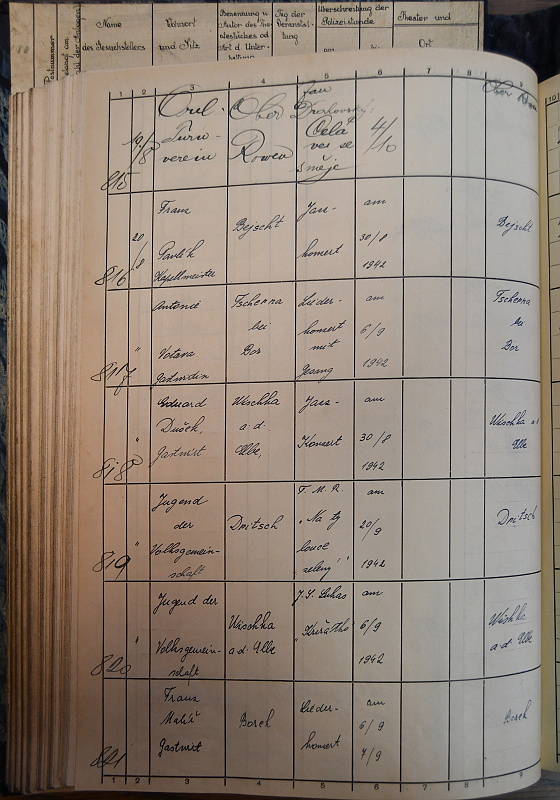 Name
des Gesuchstellers
Wohnort
und Sitz
Benennung u.
Autor des The-
aterstückes od.
Art d. Unter-
haltung
Tag der
Veranstal-
tung
Überschreitung der
Polizeistunde
Theater und
Ort
1 2 3 4 5 6 7 8 9
815
19/8
Orel
Turn-
verein
Ober
Rowen
Jan
Drahovský:
Celá
ves se
směje
4/10
816
20/8
Franz
Pavlík
Kapellmeister
Bejscht
Jazz-
konzert
am
30/8
1942
Bejscht
817
"
Antonie
Votava
Gastwirtin
Tscherna
bei
Bor
Lieder-
konzert
mit
Gesang
am
6/9
1942
Tscherna
bei
Bor
818
"
Eduard
Dušek,
Gastwirt
Wischka
a. d.
Elbe,
Jazz-
Konzert
am
30/8
1942
Wischka a d
Elbe
819
"
Jugend
der
Volksgemein-
schaft
Dritsch
F. M. R.
"Na tý
louce
zelený"
am
20/9
1942
Dritsch
820
"
Jugend der
Volksgemein-
schaft
Wischka
a. d. Elbe
J. S. Lukas
am
6/9
1942
Wischka
a. d. Elbe
821
Franz
Malíř
Gastwirt
Borek
Lieder-
konzert
am
6/9
7/9
Borek
1 2 3 4 5 6 7 8 9